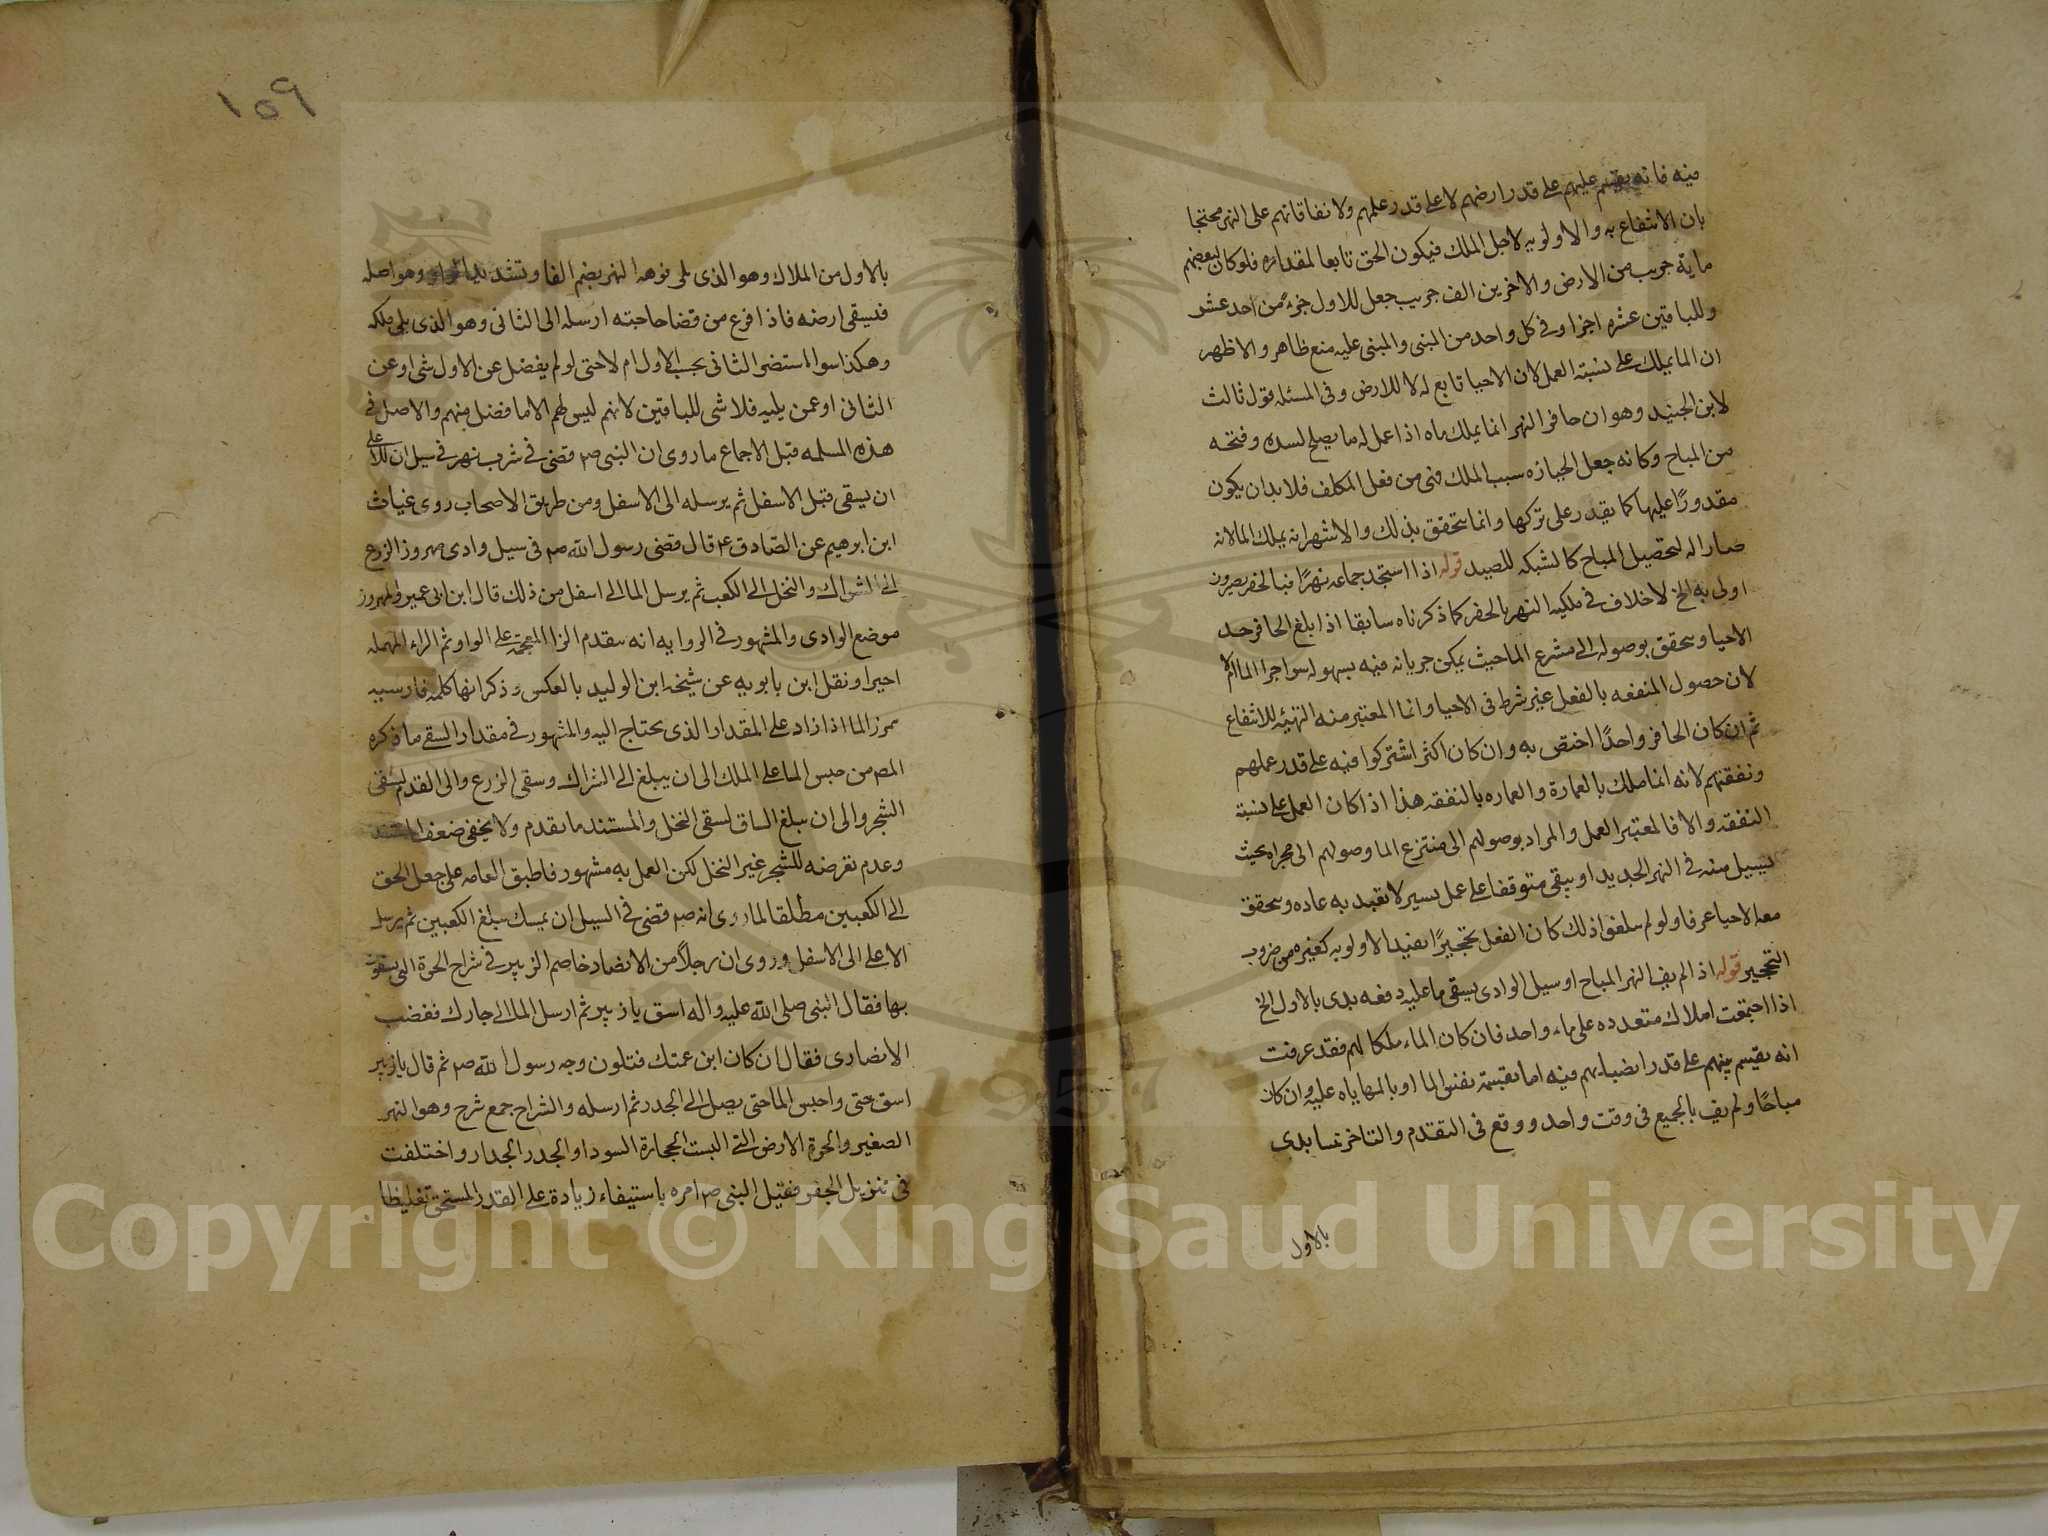 فيه فانه يقسم عليهم على قدر ارضهم لا على قدر عملهم ولا نفاقاتهم على النهر محتجا
بان الانتفاع به والاولويه لاجل الملك فيكون الحق تابعا لمقداره فلو كان لبعضهم
ماية جريب من الارض والاخرين الف جريب جعل للاول جزء من احد عشر
وللباقين عشره اجزا وفي كل واحد من المبنى والمبنى عليه منع ظاهر والاظهر
ان الما يملك على نسبته العمل لان الاحيا تابع له لا للارض وفي المسئله قول ثالث
لابن الجنيد وهو ان حافر النهر انما يملك ماه اذا عمل له ما يصلح لسده وفتحه
من المباح وكانه جعل الحيازه سبب الملك فهى من فعل المكلف فلابد ان يكون
مقدورًا عليها كما يقدر على تركها وانما يتحقق بذلك والاشهر انه يملك الما لانه
صار اله لتحصيل المباح كالشبكه للصيد قوله اذا استجد جماعه نهرًا فبالحفر يصيرون
اولى به الخ لا خلاف في ملكيه النهر بالحفر كما ذكرناه سابقا اذا بلغ الحافر حد
الاحيا ويتحقق بوصوله الى مشرع الما حيث يمكن جريانه فيه بسهوله سوا جرا الما ام لا
لان حصول المنفعه بالفعل غير شرط في الاحيا وانما المعتبر منه التهيئه للانتفاع
ثم ان كان الحافر واحدًا اختص به وان كان اكثر اشتركوا فيه على قدر عملهم
ونفقتهم لانه انما ملك بالعمارة والعماره بالنفقه هذا اذا كان العمل على نسبته
النفقه والا فالمعتبر العمل والمراد بوصولهم الى منتزع الما وصولهم الى مجراه بحيث
يسيل منه في النهر الجديد او يبقى متوقفا على عمل يسير لا تعبد به عاده ويتحقق
معه الاحيا عرفا ولو لم يبلغوا ذلك كان الفعل تحجيرًا يفيد الاولويه كغيره من ضروب
التحجير قوله اذا لم يف النهر المباح او سيل الوادى بسقى ما عليه دفعه بدى بالاول الخ
اذا اجتمعت املاك متعدده على ماء واحد فان كان الماء ملكا لهم فقد عرفت
انه يقسم بينهم على قدر انصبائهم فيه اما بقسمة نفس الما او بالمهاياه عليه وان كان
مباحًا ولم يف بالجميع في وقت واحد ووقع في التقدم والتاخر تنشا بدى
بالاول
١٥٩
بالاول من الملاك وهو الذى يلى فوهه النهر بضم الفا وتشديد الواو وهو اصله
فيسقى ارضه فاذا فرغ من قضا حاجته ارسله الى الثانى وهو الذى يلى ملكه
وهكذا سوا استضر الثانى بحبس الاول ام لا حتى لو لم يفضل عن الاول شى او عن
الثانى او عمن يليه فلا شى للباقين لانهم ليس لهم الا ما فضل منهم والاصل في
هذه المسله قبل الاجماع ما روى ان النبى ص قضى في شرب نهر في سيل ان للاعلى
ان يسقى قبل الاسفل ثم يرسله الى الاسفل ومن طريق الاصحاب روى غياث
ابن ابرهيم عن الصادق ع قال قضى رسول الله ص في سيل وادى مهروز الزرع
الى الشراك والنخل الى الكعب ثم يرسل الما الى اسفل من ذلك قال ابن ابى عمير والمهروز
موضع الوادى والمشهور في الروايه انه بتقدم الزا المعجمة على الواو ثم الراء المهمله
اخيرا ونقل ابن بابويه عن شيخه ابن الوليد بالعكس وذكر انها كلمه فارسيه
هرز الما اذا زاد على المقدار الذى يحتاج اليه والمشهور في مقدار السقي ما ذكره
المص من حبس الما على الملك الى ان يبلغ الى الشراك وسقى الزرع والى القدم لسقى
الشجر والى ان يبلغ الساق لسقى النخل والمستند ما تقدم ولا يخفى ضعف المستند
وعدم تعرضه للشجر غير النخل لكن العمل به مشهور فاطبق العامه على جعل الحق
الى الكعبين مطلقا لما روى انه ص قضى في السيل ان يمسك يبلغ الكعبين ثم يرسله
الاعلى الى الاسفل وروى ان رجلاً من الانصار خاصم الزبير في شراح الحرة التى يسقون
بها فقال النبى صلى الله عليه واله اسق يا زبير ثم ارسل الما الى جارك فغضب
الانصارى فقال ان كان ابن عمتك فتلون وجه رسول الله ص ثم قال يا زبير
اسق حتى واحبس الما حتى يصل الى الجدر ثم ارسله والشراح جمع شرح وهو النهر
الصغير والحرة الارض التى البست الحجارة السودا والجدر الجدار واختلفت
في تنزيل الخبر فقيل النبى ص امره باستيفاء زيادة على القدر المستحق تغليظا
Copyright © King Saud University
1957